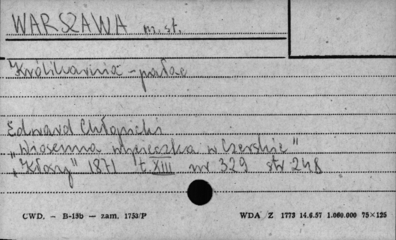 WARSZAWA m.st.
Królikarnia - pałac
Edward Chłopicki
"Wiosenna wycieczka w Czerskie"
"Kłosy" 1871 t. XIII nr 329 str 248
CWD. — B-15b — zam. 1753/P WDA Z 1773 14.6.57 1.000.000 75×125